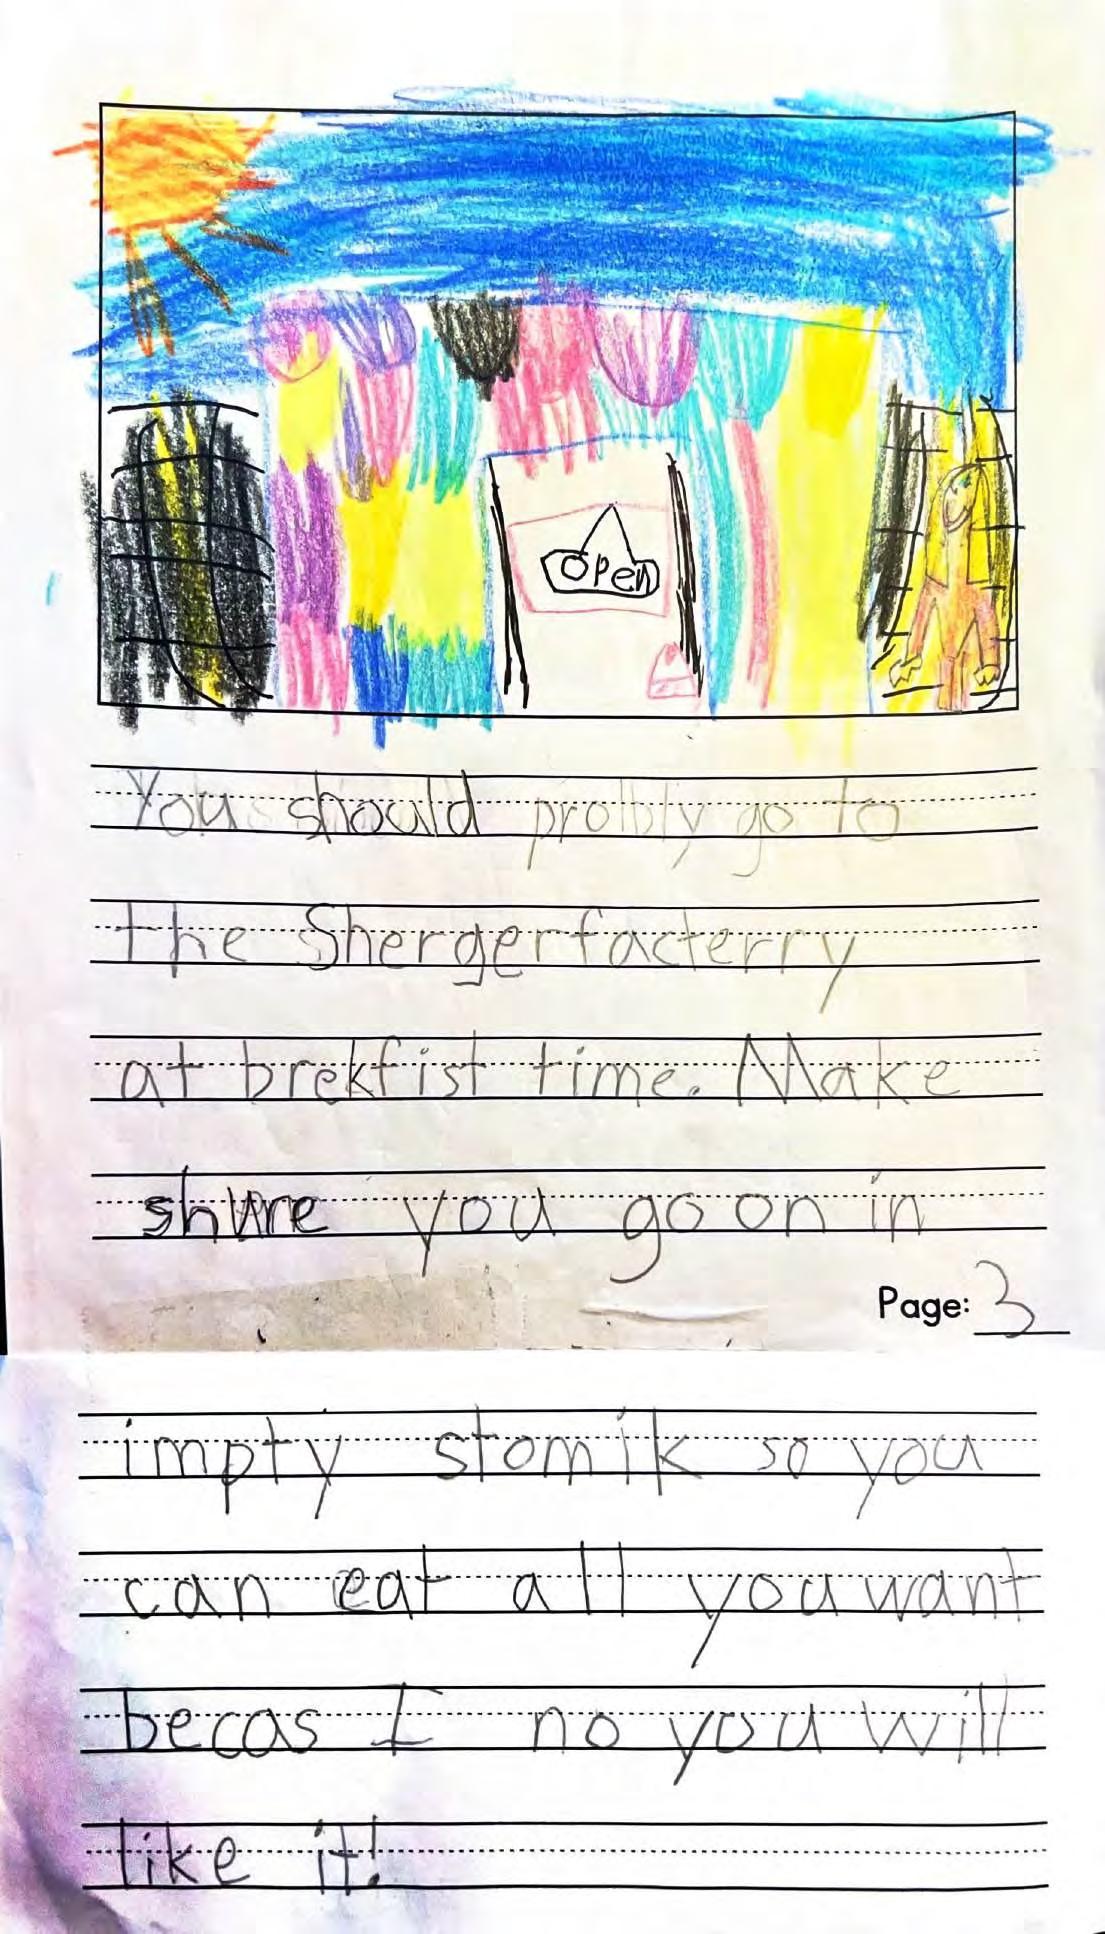 open
You should prolbly go to
the Shergerfacterry
at brekfist time. Make
shure you go on in
Page: 3
impty stomik so you
can eat all you want
becas I no you will
like it!